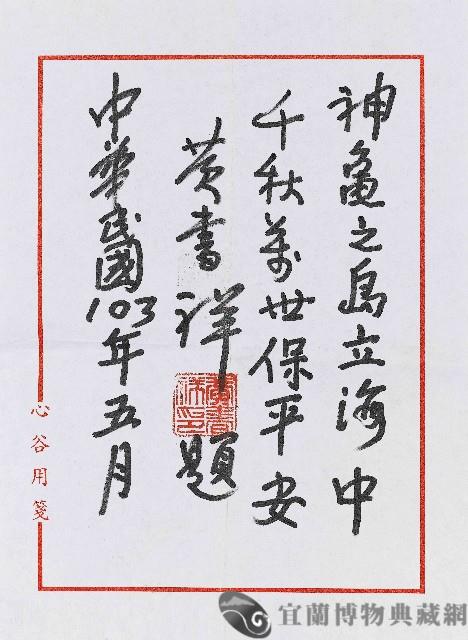 神龜之島立海中
千秋萬世保平安
黃書祥題
中華民國103年五月
心谷用箋
宜蘭博物典藏網